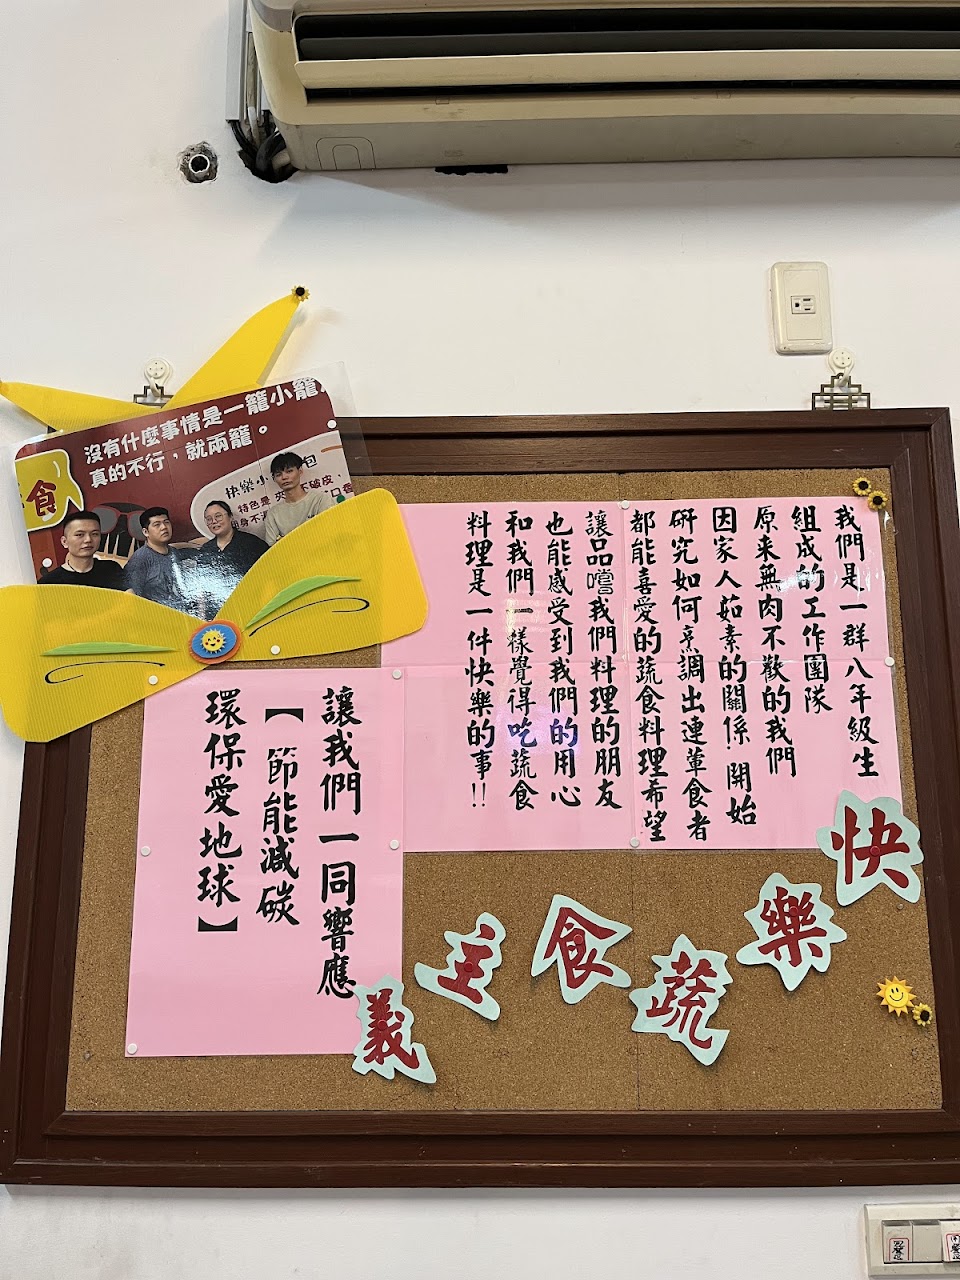 我們是一群八年級生
組成的工作團隊
原來無肉不歡的我們
因家人茹素的關係!開始
研究如何烹調出連葷食者
都能喜愛的蔬食料理希望
讓品嚐我們料理的朋友
也能感受到我們的用心
和我們一樣覺得吃蔬食
料理是一件快樂的事!!
快樂蔬食主義
讓我們一同響應
【節能減碳
環保愛地球】
沒有什麼事情是一籠小籠
真的不行，就兩籠。
食
快樂小
包
特色是
不破皮